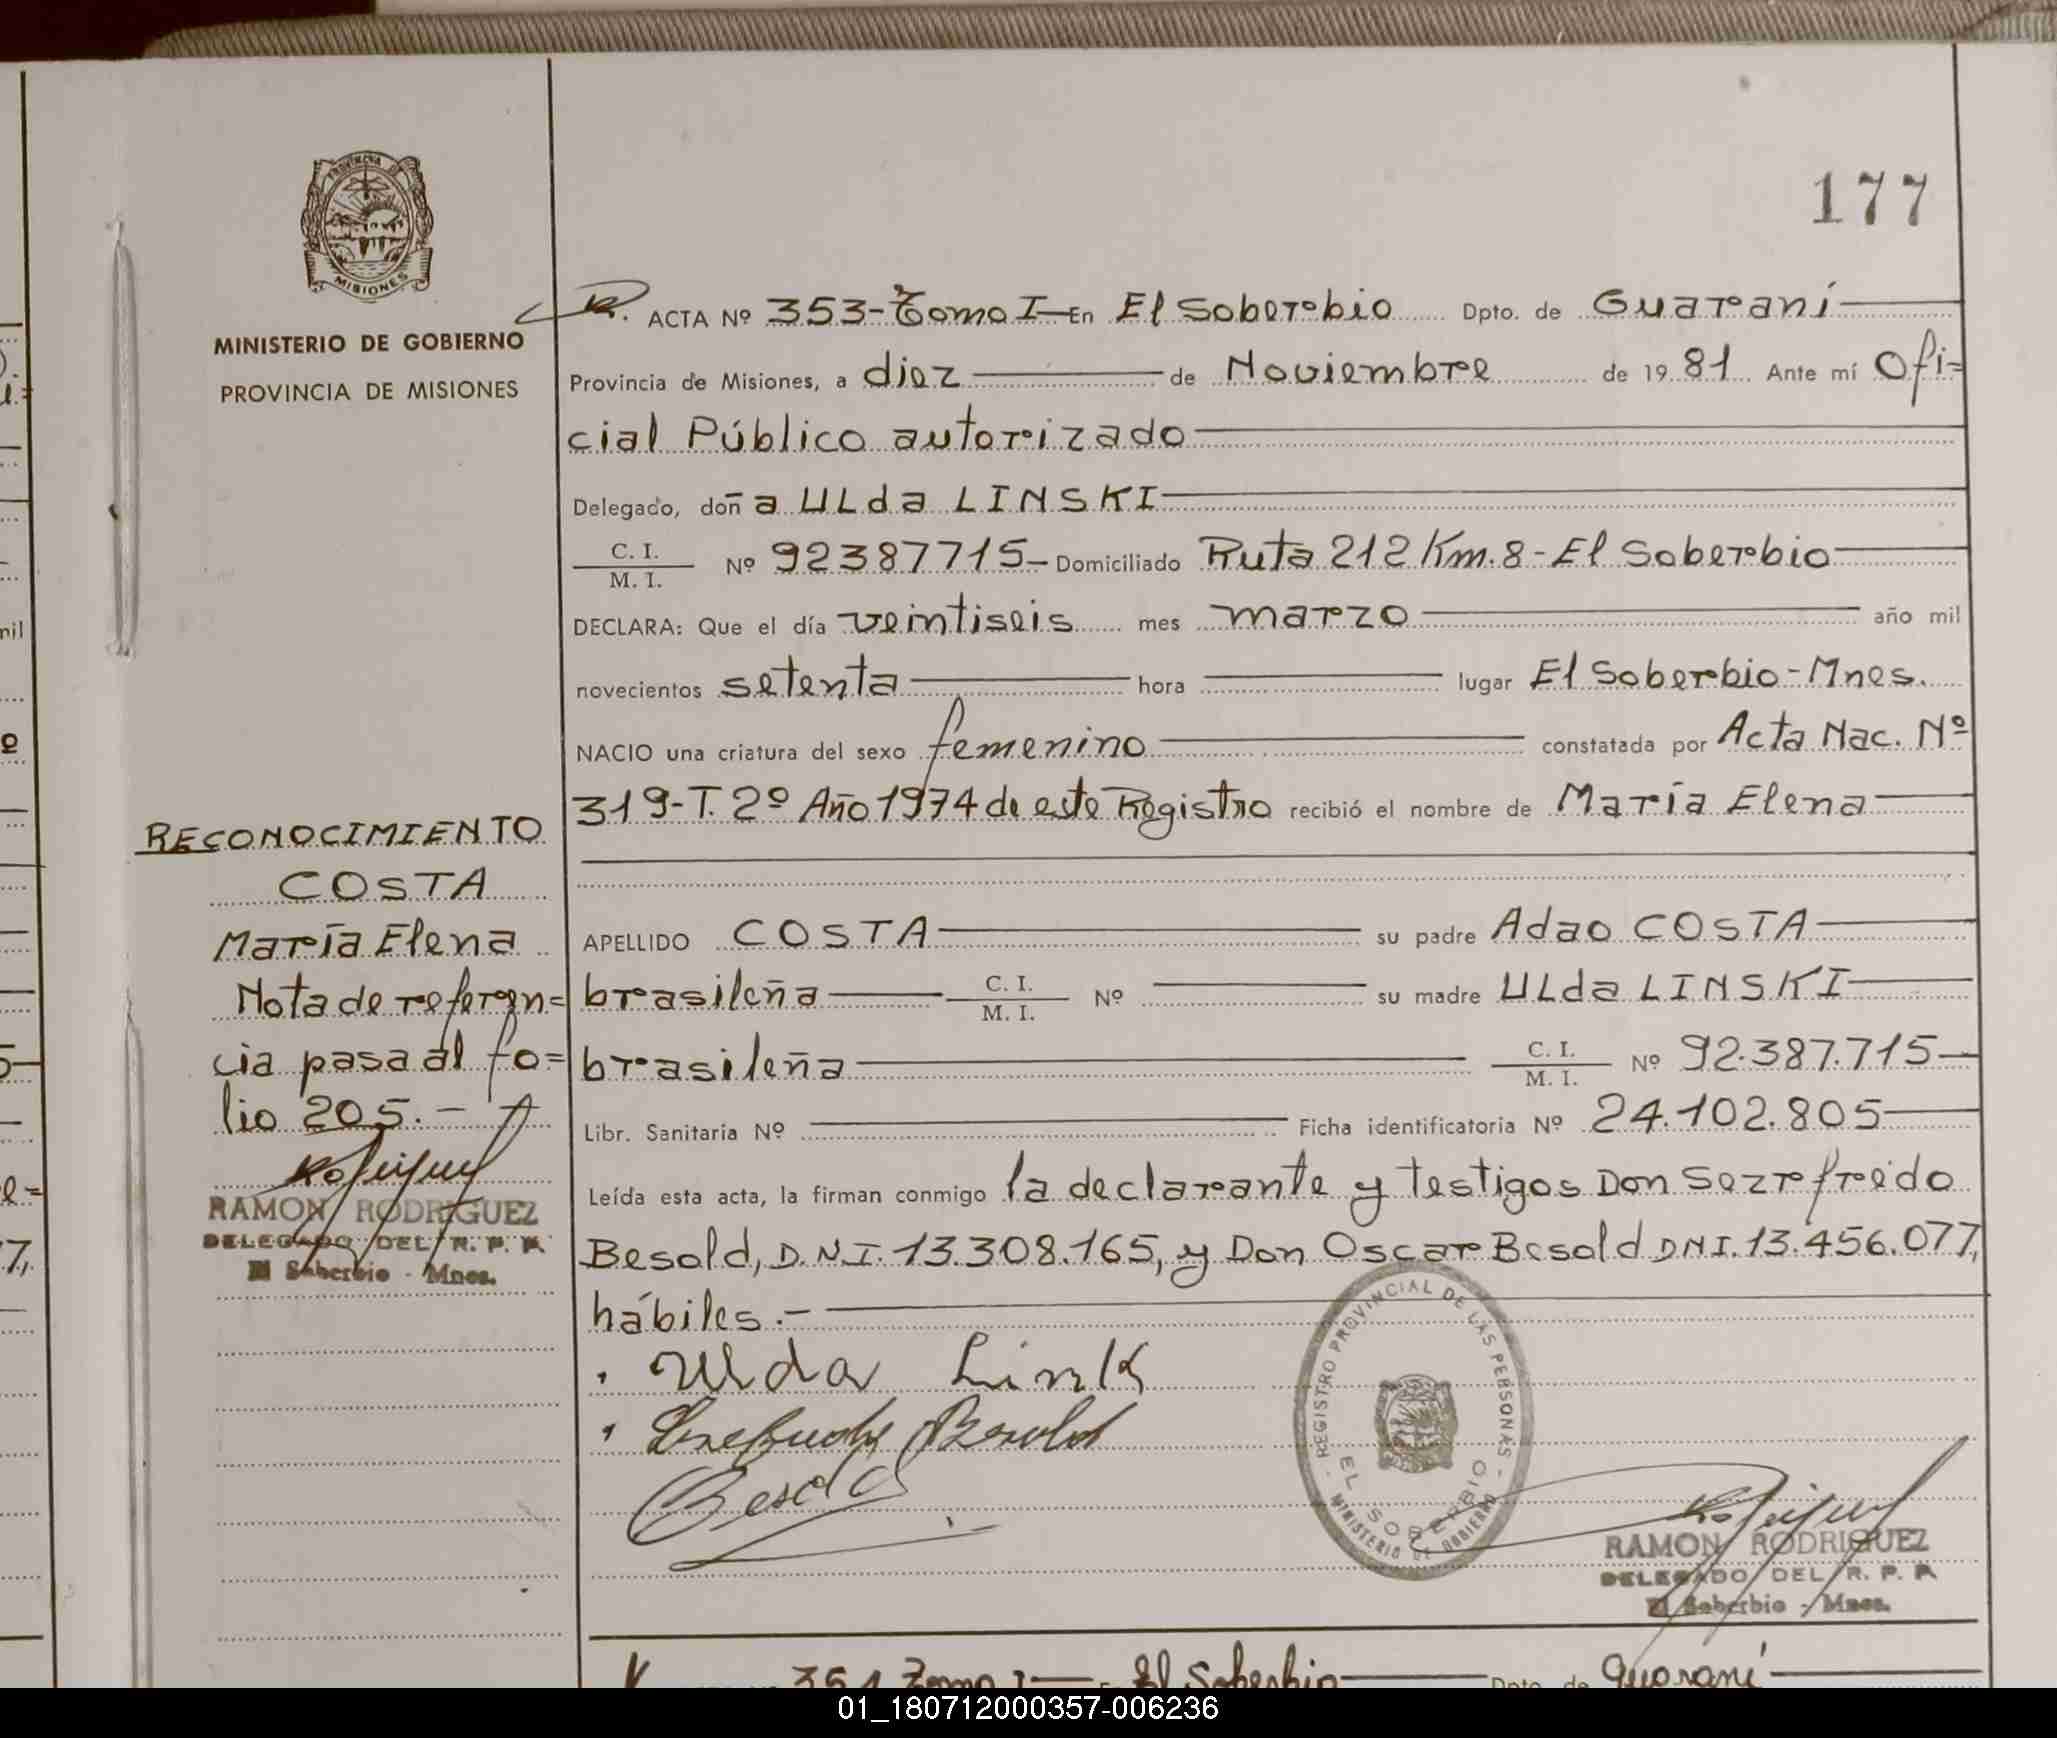 177
PROVINCIA DE
MISIONES
MINISTERIO DE GOBIERNO
PROVINCIA DE MISIONES
R. ACTA Nº 353-Tomo I- En El Soberbio Dpto. de Guaraní
Provincia de Misiones, a diez de Noviembre de 19 81 Ante mí Ofi=
cial Público autorizado
Delegado, doña ULda LINSKI
C. I.
M. I. Nº 92387715- Domiciliado Ruta 212 Km. 8 - El Soberbio
DECLARA: Que el día veintiseis mes marzo año mil
novecientos setenta hora lugar El Soberbio - Mnes.
NACIO una criatura del sexo femenino constatada por Acta Nac. Nº
319-T. 2º Año 1974 de este Registro recibió el nombre de María Elena
APELLIDO COSTA su padre Adao COSTA
brasileña C. I. M. I. Nº su madre ULda LINSKI
brasileña C. I. M. I. Nº 92.387.715-
Libr. Sanitaria Nº Ficha identificatoria Nº 24.102.805
Leída esta acta, la firman conmigo la declarante y testigos Don Sezrfreido
Besold, D.N.I. 13.308.165, y Don Oscar Besold DNI. 13.456.077,
hábiles.-
RECONOCIMIENTO
COSTA
María Elena
Nota de referen=
cia pasa al fo=
lio 205.-
RAMON RODRIGUEZ
DELEGADO DEL R. P. P.
El Soberbio - Mnes.
Ulda Link
Besold
Besold
REGISTRO PROVINCIAL DE LAS PERSONAS
EL SOBERBIO
MINISTERIO DE GOBIERNO
RAMON RODRIGUEZ
DELEGADO DEL R. P. P.
El Soberbio - Mnes.
354 Tomo I El Soberbio Dpto. de Guaraní
01_180712000357-006236